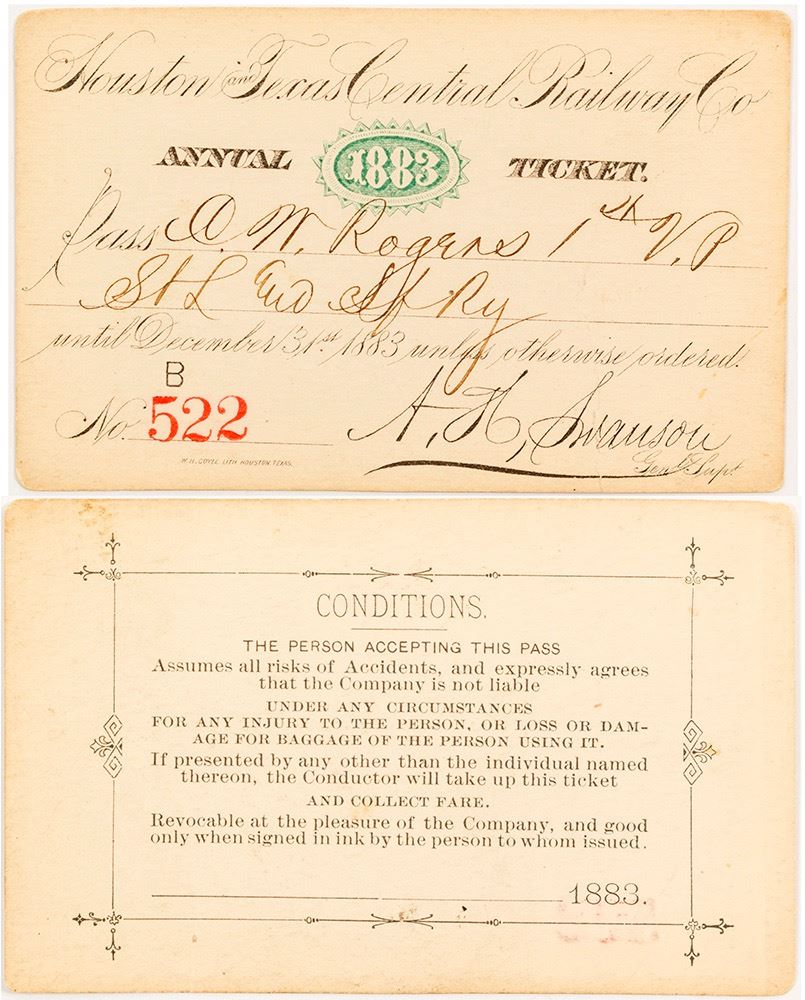 Houston and Texas Central Railway Co
ANNUAL 1883 TICKET.
Pass C. W. Rogers 1st V. P
St L and S f Ry
until December 31st 1883 unless otherwise ordered.
B
No. 522
A, H, Swanson
Gen'l Supt
W. H. COYLE LITH HOUSTON TEXAS.
CONDITIONS.
THE PERSON ACCEPTING THIS PASS
Assumes all risks of Accidents, and expressly agrees
that the Company is not liable
UNDER ANY CIRCUMSTANCES
FOR ANY INJURY TO THE PERSON, OR LOSS OR DAM-
AGE FOR BAGGAGE OF THE PERSON USING IT.
If presented by any other than the individual named
thereon, the Conductor will take up this ticket
AND COLLECT FARE.
Revocable at the pleasure of the Company, and good
only when signed in ink by the person to whom issued.
1883.